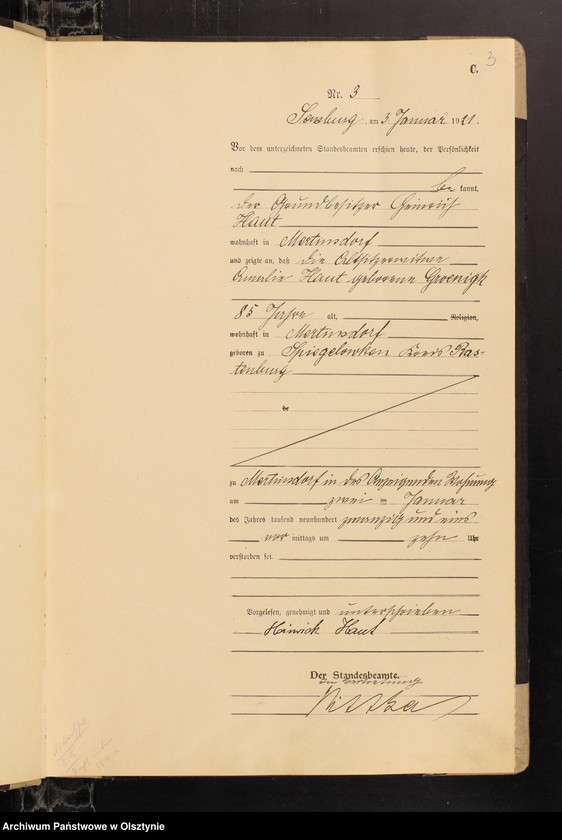 3
C.
Nr. 3
Sensburg am 3. Januar 1921.
Vor dem unterzeichneten Standesbeamten erschien heute, der Persönlichkeit
nach
be kannt,
der Grundbesitzer Heinrich
Haut
wohnhaft in Mertinsdorf
und zeigte an, daß die Altsitzerwitwe
Amalie Haut geborene Groenigk
85 Jahre alt, Religion,
wohnhaft in Mertinsdorf
geboren zu Spiegelowken Kreis Ras-
tenburg
zu Mertinsdorf in des Anzeigenden Wohnung
am zwei ten Januar
des Jahres tausend neunhundert zwanzig und eins
vor mittags um zehn Uhr
verstorben sei.
Vorgelesen, genehmigt und unterschrieben
Heinrich Haut
Der Standesbeamte.
In Vertretung
Archiwum Państwowe w Olsztynie